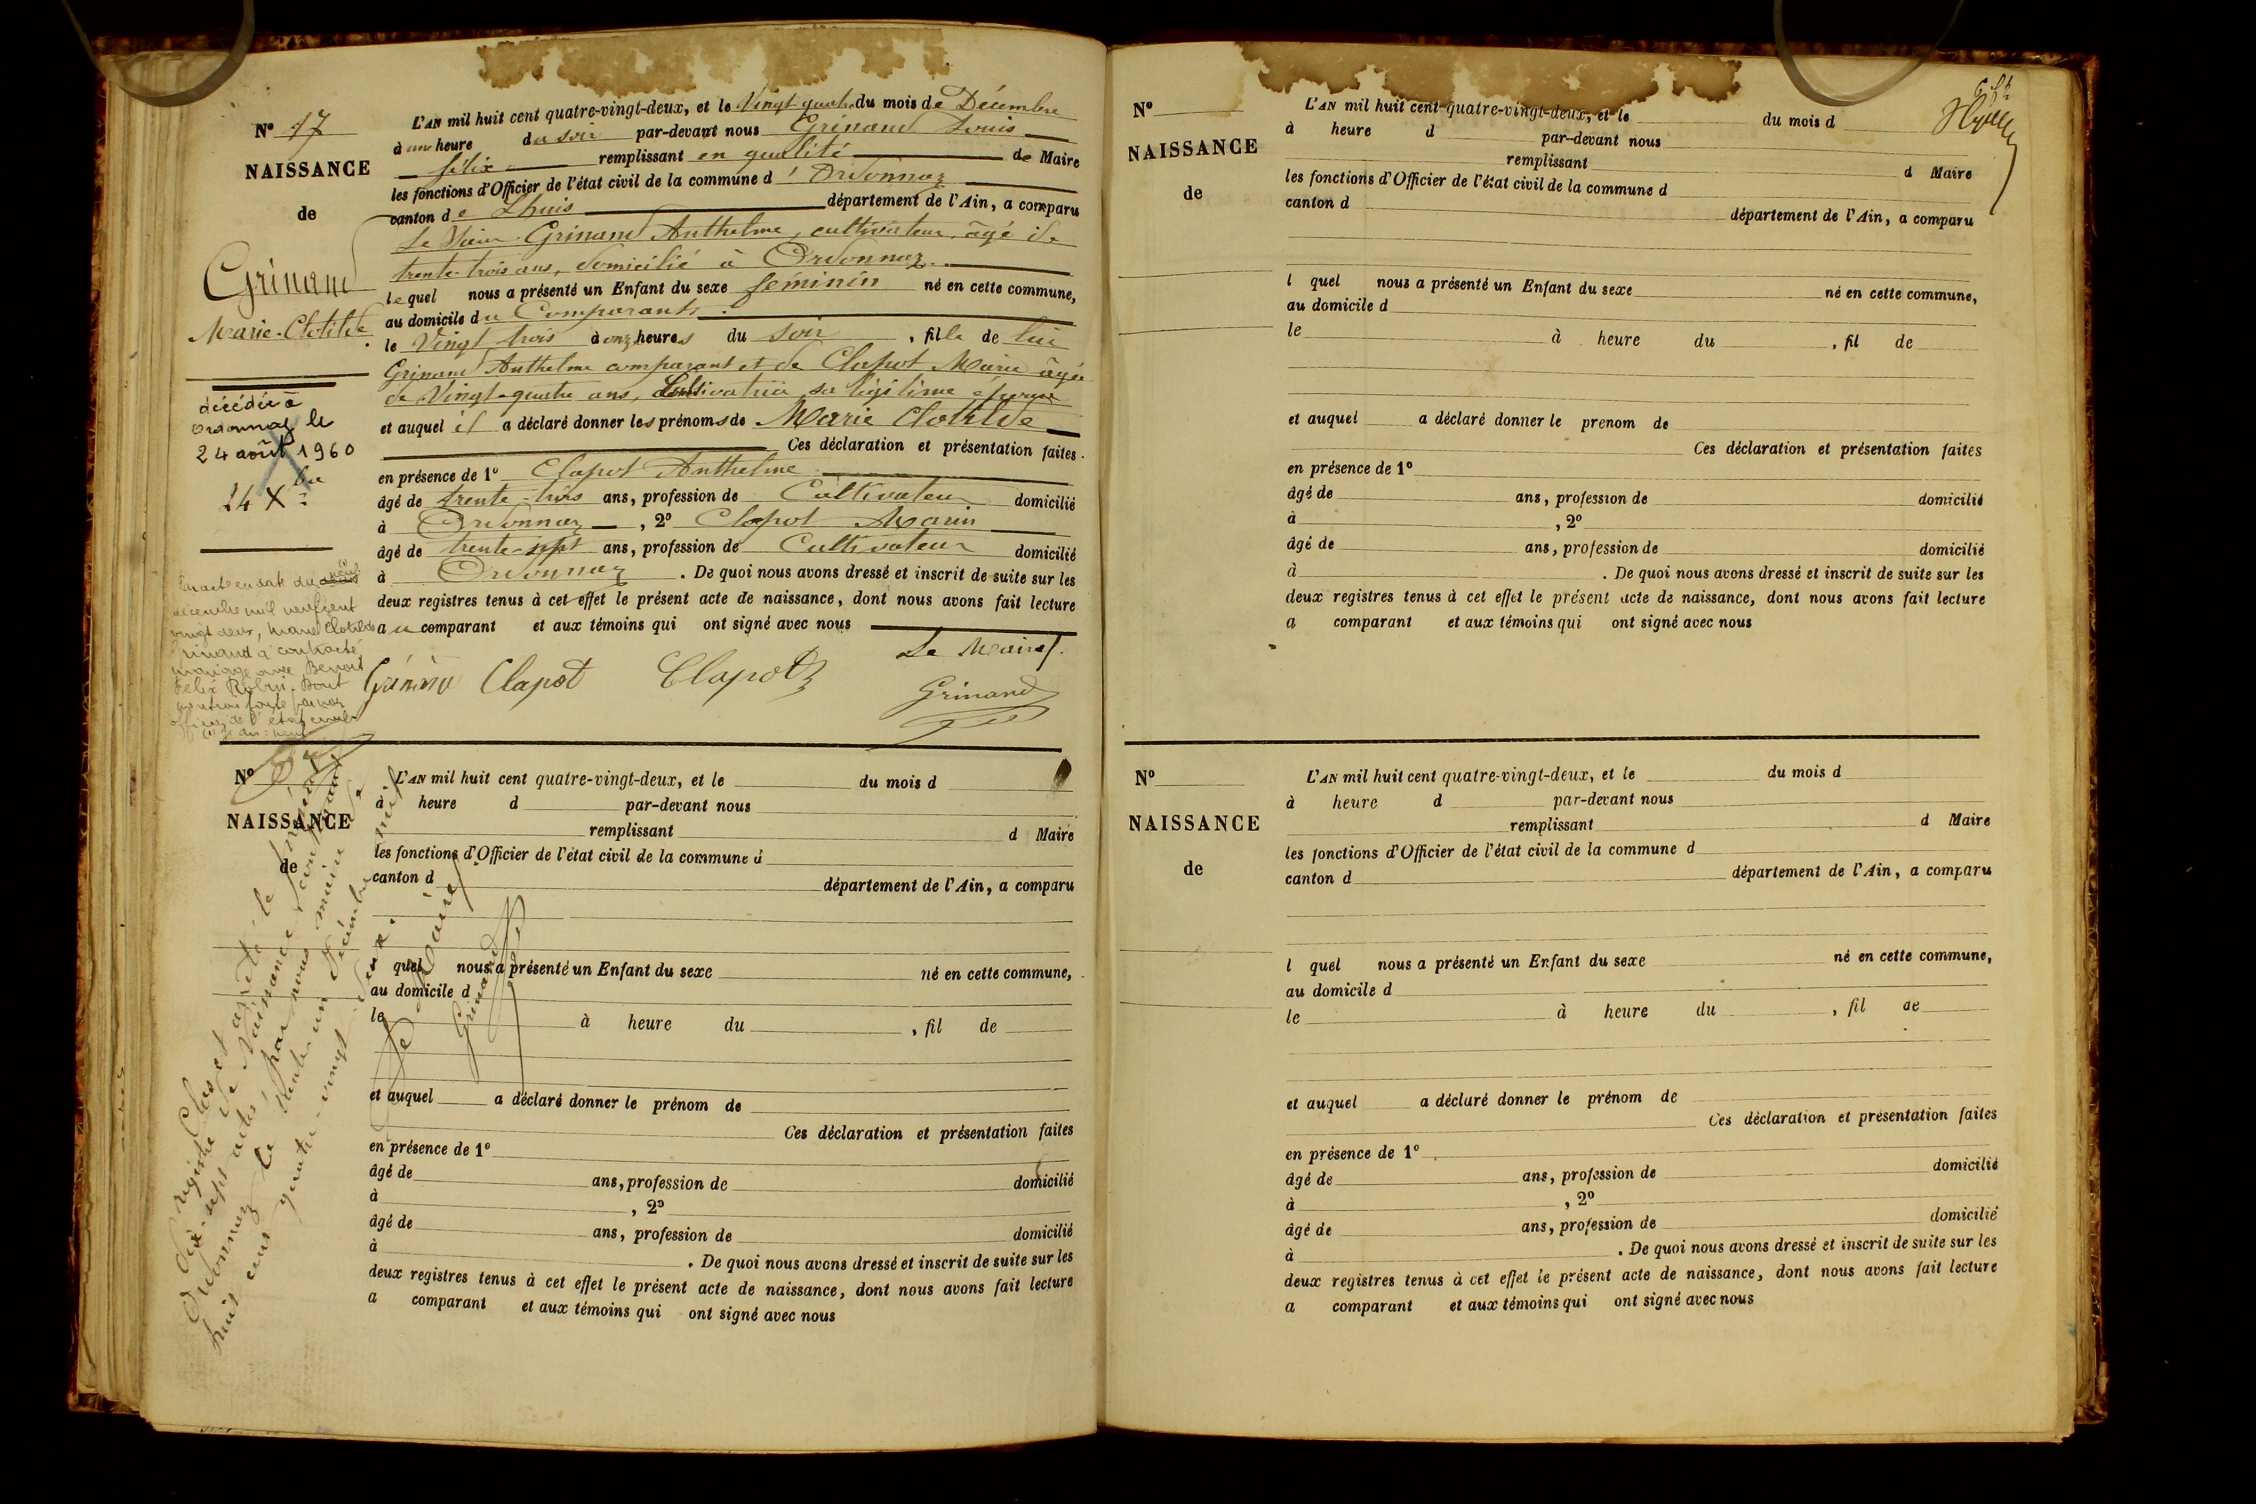 N° 17
NAISSANCE
de
Grinand
Marie-Clotilde
décédée à
Ordonnaz le
24 août 1960
24 Xbre
L'AN mil huit cent quatre-vingt-deux, et le Vingt quatre du mois de Décembre
à une heure du soir par-devant nous Grinand Louis
félix remplissant en qualité de Maire
les fonctions d'Officier de l'état civil de la commune d'Ordonnaz
canton de Lhuis département de l'Ain, a comparu
Le Sieur Grinand Anthelme, cultivateur, âgé de
trente-trois ans, domicilié à Ordonnaz
lequel nous a présenté un Enfant du sexe féminin né en cette commune,
au domicile du Comparant
le Vingt trois à onze heures du soir, fille de lui
Grinand Anthelme comparant et de Clapot Marie âgée
de Vingt-quatre ans, Cultivatrice sa légitime épouse
et auquel il a déclaré donner les prénoms de Marie Clotilde
Ces déclaration et présentation faites
en présence de 1° Clapot Anthelme
âgé de trente-trois ans, profession de Cultivateur domicilié
à Ordonnaz, 2° Clapot Marin
âgé de trente-sept ans, profession de Cultivateur domicilié
à Ordonnaz. De quoi nous avons dressé et inscrit de suite sur les
deux registres tenus à cet effet le présent acte de naissance, dont nous avons fait lecture
au comparant et aux témoins qui ont signé avec nous
Le Maire
Clapot Clapot
Grinand
décembre mil neuf cent
vingt deux, Marie Clotilde
Grinand a contracté
mariage avec Benoit
Félix
N°
NAISSANCE
de
L'AN mil huit cent quatre-vingt-deux, et le du mois d
à heure d par-devant nous
remplissant d Maire
les fonctions d'Officier de l'état civil de la commune d
canton d département de l'Ain, a comparu
quel nous a présenté un Enfant du sexe né en cette commune,
au domicile d
le à heure du , fil de
et auquel a déclaré donner le prénom de
Ces déclaration et présentation faites
en présence de 1°
âgé de ans, profession de domicilié
à , 2°
âgé de ans, profession de domicilié
à . De quoi nous avons dressé et inscrit de suite sur les
deux registres tenus à cet effet le présent acte de naissance, dont nous avons fait lecture
a comparant et aux témoins qui ont signé avec nous
Clos et arrêté le présent
registre de Naissance
dix-sept actes par nous maire
Ordonnaz le trente un Décembre mil
huit cent quatre-vingt deux.
Le Maire
Grinand
N°
NAISSANCE
de
L'AN mil huit cent quatre-vingt-deux, et le du mois d
à heure d par-devant nous
remplissant d Maire
les fonctions d'Officier de l'état civil de la commune d
canton d département de l'Ain, a comparu
l quel nous a présenté un Enfant du sexe né en cette commune,
au domicile d
le à heure du , fil de
et auquel a déclaré donner le prenom de
Ces déclaration et présentation faites
en présence de 1°
âgé de ans, profession de domicilié
à , 2°
âgé de ans, profession de domicilié
à . De quoi nous avons dressé et inscrit de suite sur les
deux registres tenus à cet effet le présent acte de naissance, dont nous avons fait lecture
a comparant et aux témoins qui ont signé avec nous
N°
NAISSANCE
de
L'AN mil huit cent quatre-vingt-deux, et le du mois d
à heure d par-devant nous
remplissant d Maire
les fonctions d'Officier de l'état civil de la commune d
canton d département de l'Ain, a comparu
l quel nous a présenté un Enfant du sexe né en cette commune,
au domicile d
le à heure du , fil de
et auquel a déclaré donner le prénom de
Ces déclaration et présentation faites
en présence de 1°
âgé de ans, profession de domicilié
à , 2°
âgé de ans, profession de domicilié
à . De quoi nous avons dressé et inscrit de suite sur les
deux registres tenus à cet effet le présent acte de naissance, dont nous avons fait lecture
a comparant et aux témoins qui ont signé avec nous